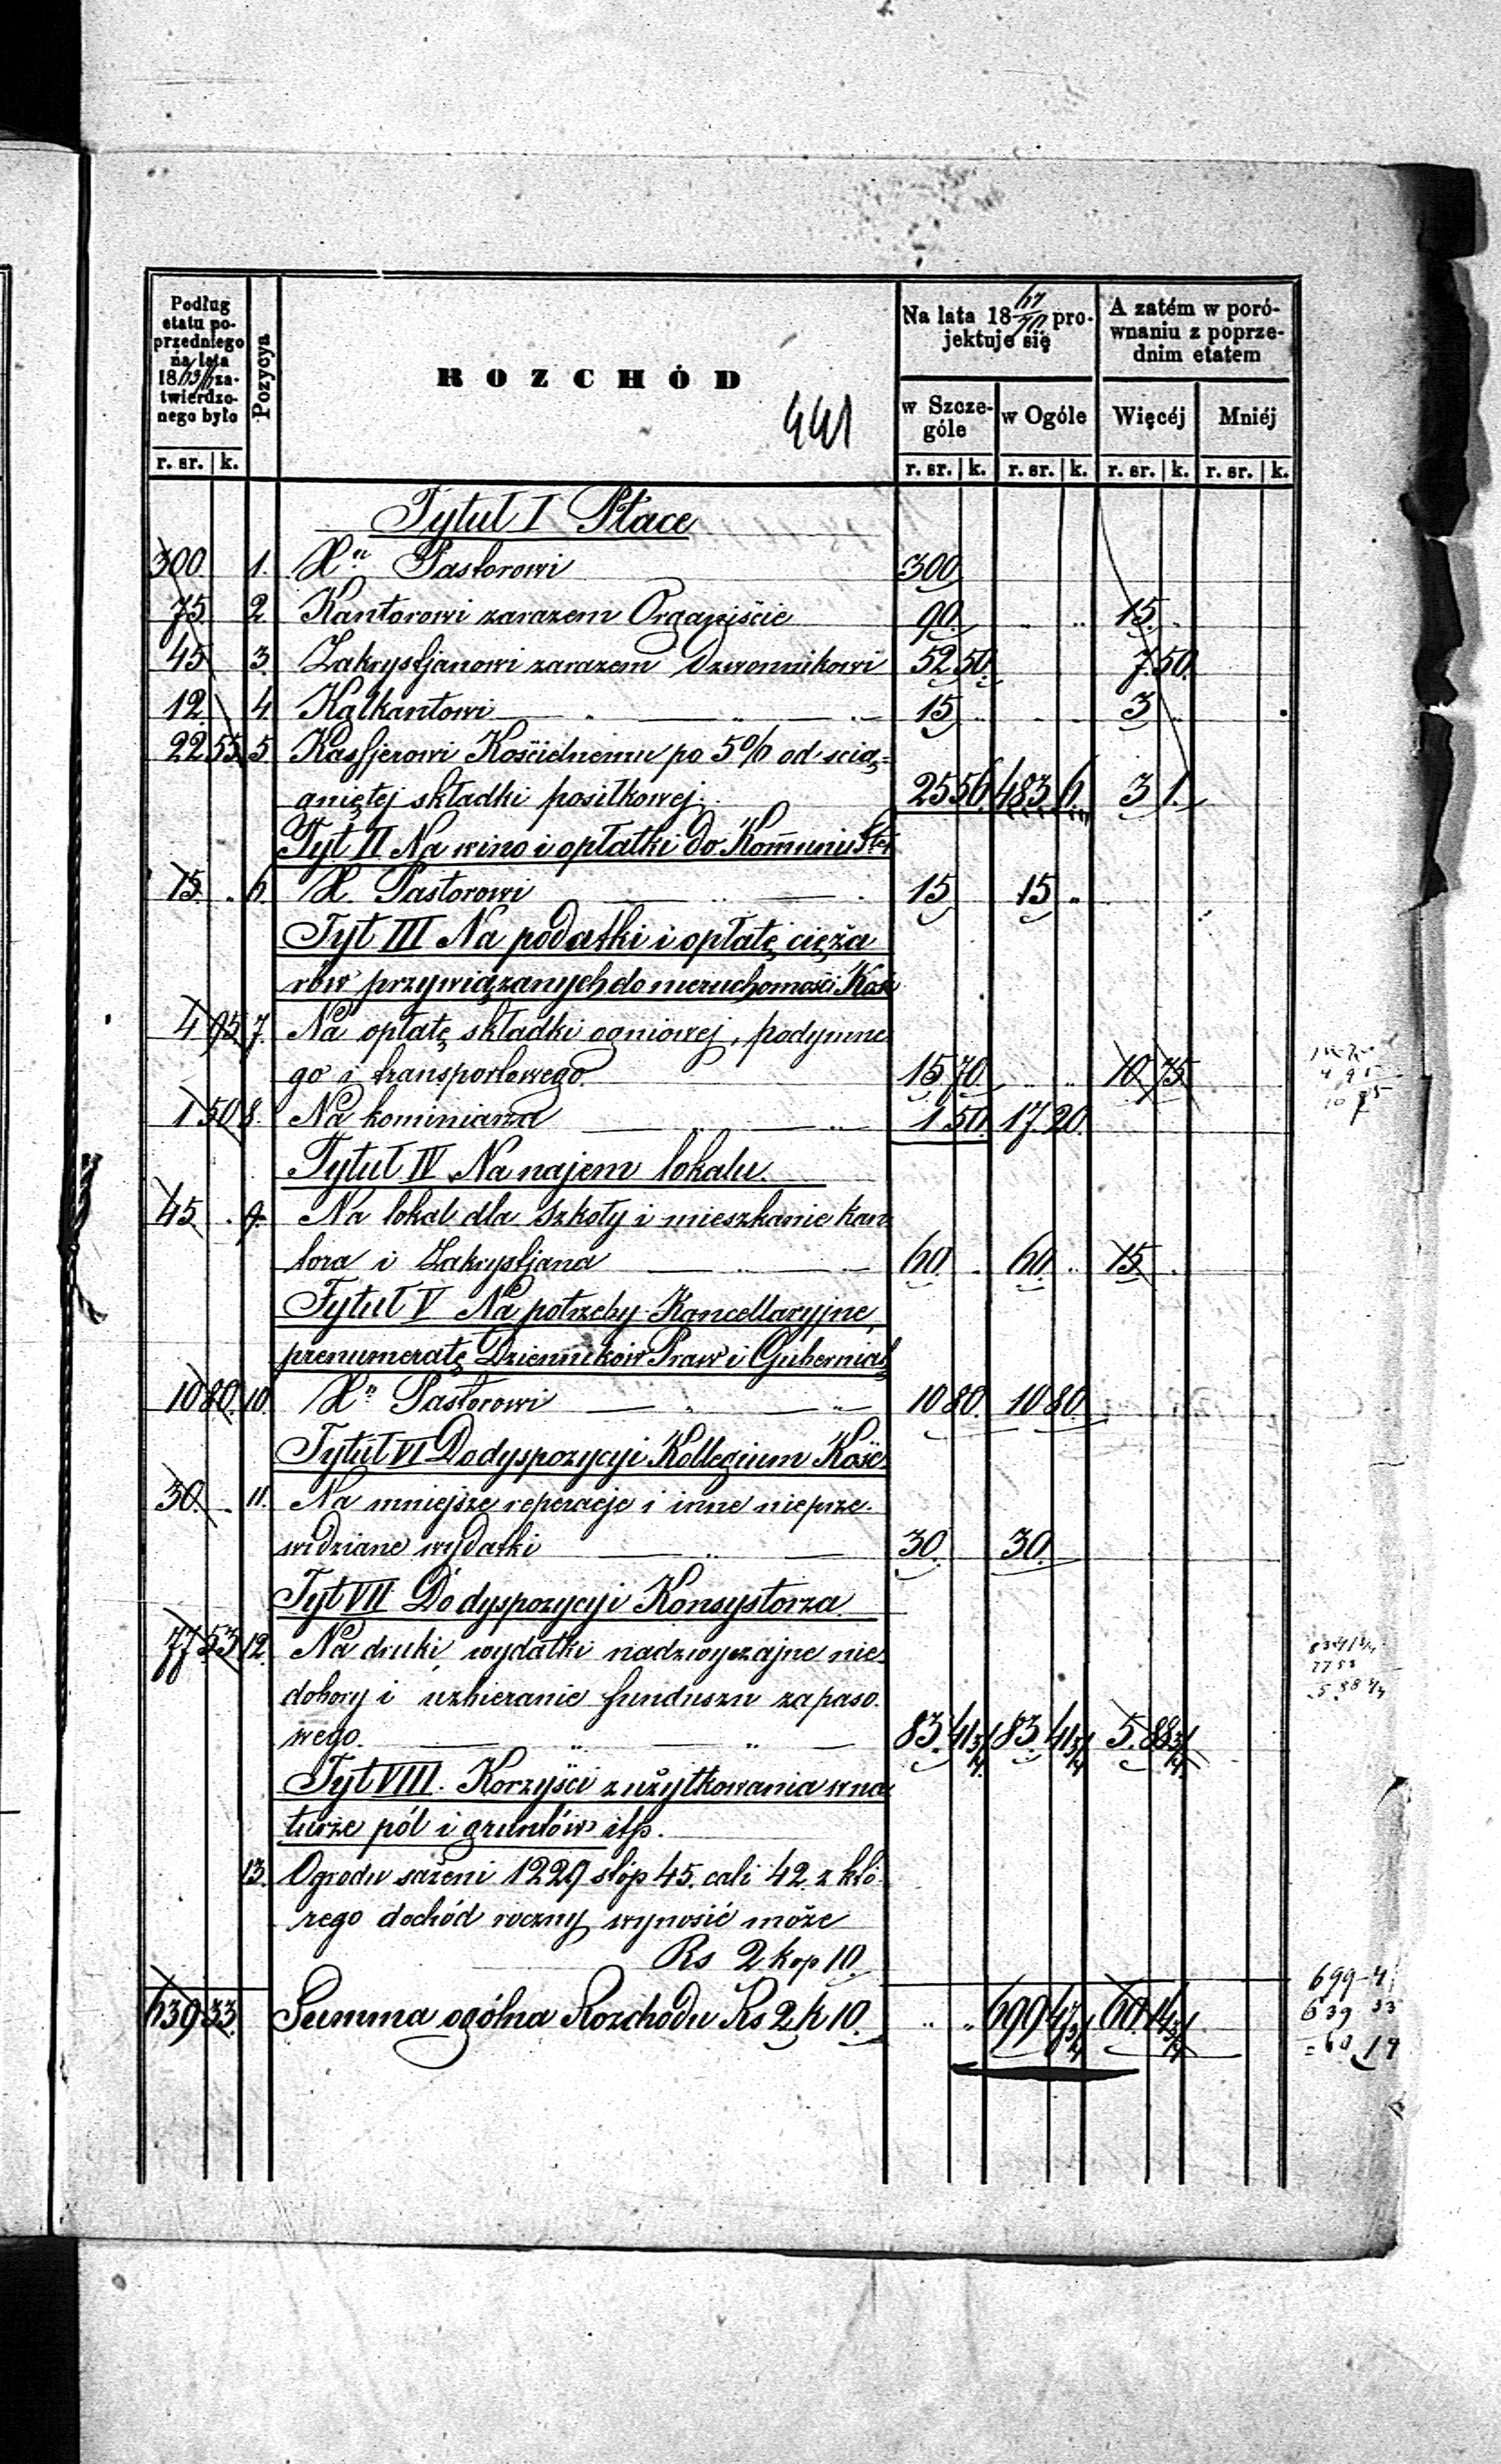 Podług
etatu po-
przedniego
na lata
18 63/6 za-
twierdzo-
nego było
r. sr. | k.
Pozycya
ROZCHÓD
441
Na lata 18 67/70 pro-
jektuje się
w Szcze-
góle
r. sr. | k.
w Ogóle
r. sr. | k.
A zatém w poró-
wnaniu z poprze-
dnim etatem
Więcéj
r. sr. | k.
Mniéj
r. sr. | k.
Tytuł I Płace
300. 1. X. Pastorowi 300
75 2 Kantorowi zarazem Organiście 90. 15.
45 3. Zakrystjanowi zarazem Dzwonnikowi 52 50. 7. 50.
12. 4. Kalkantowi 15 3
22 55 5. Kassjerowi Kościelnemu po 5% od ścią=
gniętej składki posiłkowej. 25 56 483 6. 3 1.
Tyt II Na wino i opłatki do Kommunii Stej
15. 6. X. Pastorowi 15 15
Tyt III Na podatki i opłatę cięża
rów przywiązanych do nieruchomości Kośc
4 95 7. Na opłatę składki ogniowej, podymne
go i transportowego. 15 70. 10 75
1 50 8. Na kominiarza 1 50. 17 20.
Tytuł IV Na najem lokalu.
45 9. Na lokal dla szkoły i mieszkanie kan
tora i Zakrystjana 60 60. 15
Tytuł V Na potrzeby Kancellaryjne,
prenumeratę Dzienników Praw i Gubernial
10 80. 10. X. Pastorowi 10 80. 10 80.
Tytuł VI Do dyspozycyi Kollegium Kość.
30. 11. Na mniejsze reperacje i inne nieprze-
widziane wydatki 30. 30.
Tyt VII Do dyspozycyi Konsystorza.
77 53 12. Na druki, wydatki nadzwyczajne nie
dobory i uzbieranie funduszu zapaso-
wego. 83. 41 3/4 83. 41 3/4 5. 88 3/4
Tyt VIII. Korzyści z użytkowania w na
turze pól i gruntów itp.
13. Ogrodu sążeni 1229 stóp 45. cali 42 z któ
rego dochód roczny wynosić może
Rs 2 kop 10.
639 33. Summa ogólna Rozchodu Rs 2 k 10. 699 47 3/4 60. 14 3/4
4 95
10 75
83 41 3/4
77 53
5 88 3/4
699 4
639 33
= 60 14